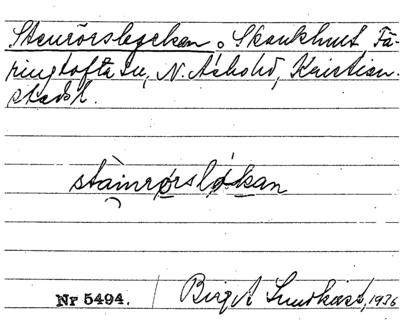 Stenrörslyckan, Skånkhuset, Fä-
ringtofta sn, N. Åsbohd, Kristian-
stads l.
stàinrørsløkan
Nr 5494.
Birgit Sundkvist, 1926